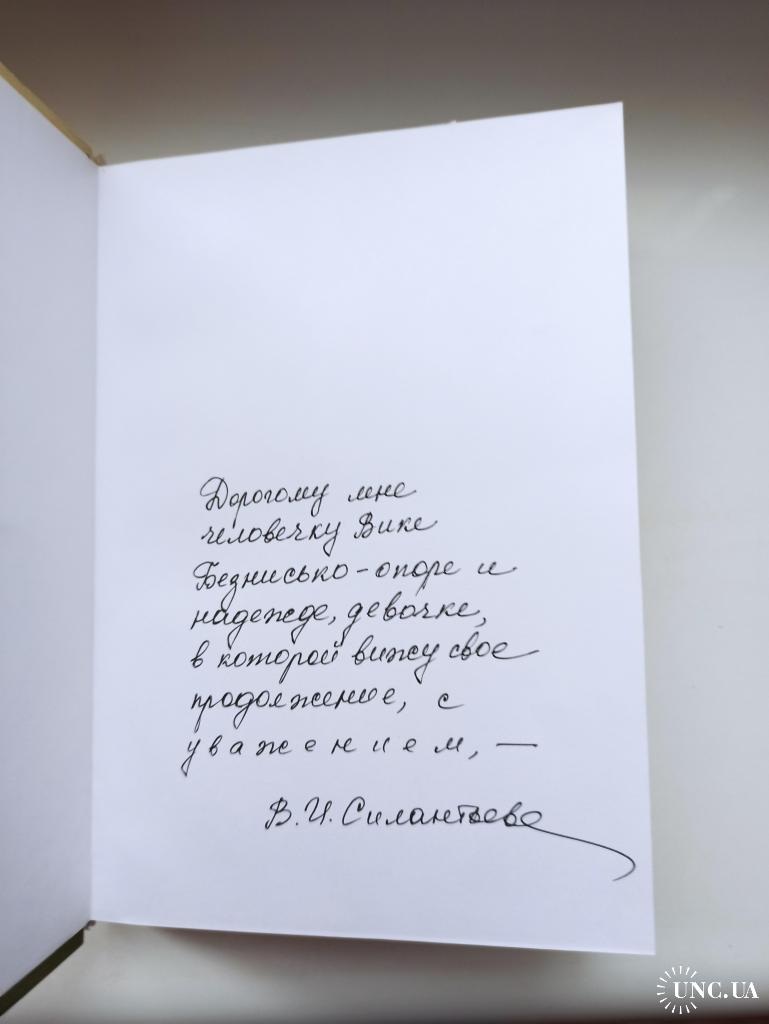 Дорогому мне
человечку Вике
Безнисько - опоре и
надежде, девочке,
в которой вижу свое
продолжение, с
уважением, —
В. И. Силантьева
UNC.UA